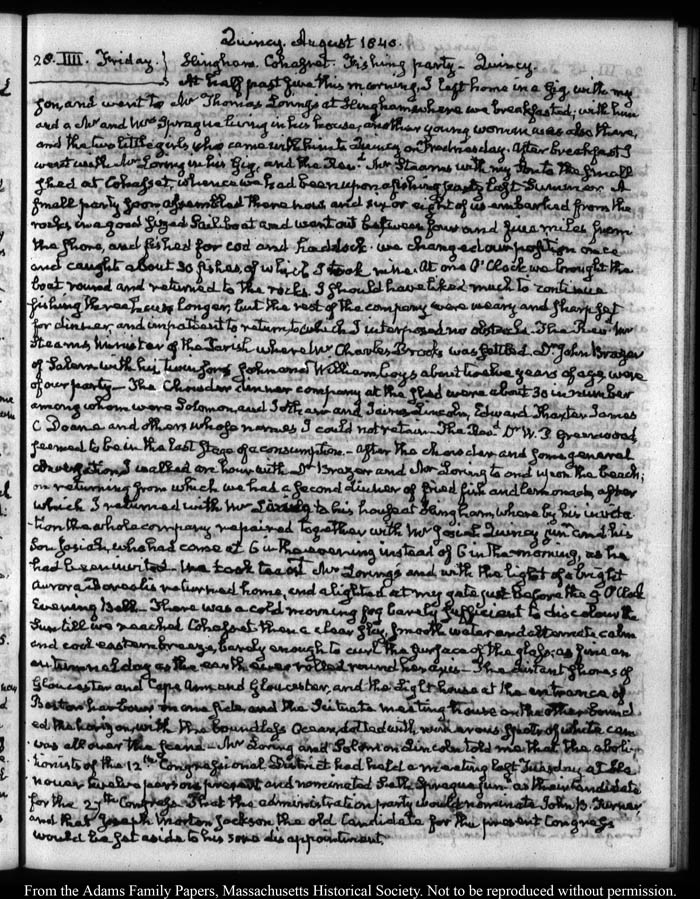 Quincy. August 1840.
28. IIII. Friday. } Hingham. Cohasset. Fishing party – Quincy.
At half past five this morning, I left home in a Gig with my
Son, and went to Mr Thomas Loring's at Hingham where we breakfasted; with him
and a Mr and Mrs Sprague living in his house, another young woman was also there,
and the two little girls who came with him to Quincy on Wednesday. After breakfast I
went with Mr Loring in his Gig, and the Revd. Mr Stearns with my Son to the small
shed at Cohasset, whence we had been upon a fishing party last Summer. A
small party soon assembled there, and six or eight of us embarked from the
rocks in a good sized Sail boat and went out between four and five miles from
the shore, and fished for cod and haddock. we changed our position once
and caught about 30 fishes, of which I took nine. At one O'Clock we brought the
boat round and returned to the rocks. I should have liked much to continue
fishing three hours longer, but the rest of the company were weary and sharp set
for dinner, and impatient to return, to which I interposed no obstacle. The Revd Mr
Stearns Minister of the Parish where Mr Charles Brooks was settled. Dr John Brazer
of Salem with his two Sons John and William, boys about twelve years of age, were
of our party – The Chowder dinner company at the shed were about 30 in number
among whom were Solomon, and Jotham and James Lincoln, Edward Thaxter James
C Doane and others whose names I could not retain – The Revd. Dr W. P. Greenwood,
seemed to be in the last stage of a consumption. – After the chowder and some general
conversation I walked an hour with Dr Brazer and Mr Loring to and upon the beach;
on returning from which we had a second dinner of fried fish and lemonade, after
which I returned with Mr Loring to his house at Hingham, where by his invita-
tion the whole company repaired together with Mr Josiah Quincy junr. and his
Son Josiah, who had come at 6 in the evening instead of 6 in the morning, as he
had been invited. We took tea at Mr Loring's and with the light of a bright
Aurora Borealis returned home, and alighted at my gate just before the 9 O'Clock
Evening Bell – There was a cold morning fog barely sufficient to discolour the
Sun till we reached Cohasset then a clear sky, smooth water and alternate calm
and cool eastern breeze, barely enough to curl the surface of the glass; as fine an
autumnal day as the earth ever rolled round her axis – The distant shores of
Gloucester and Cape Ann and Gloucester, and the Light house at the entrance of
Boston harbour on one side, and the Scituate meeting house on the other bound-
ed the horizon, with the boundless Ocean, dotted with numerous spots of white can-
vas all over the scene – Mr Loring and Solomon Lincoln told me that the aboli-
tionists of the 12th Congressional District had held a meeting last Tuesday, at Ha-
nover twelve persons present and nominated Seth Sprague junr as their candidate
for the 27th Congress. That the administration party would nominate John B. Turner,
and that Joseph Morton Jackson the old Candidate for the present Congress
would be set aside to his sore disappointment.
From the Adams Family Papers, Massachusetts Historical Society. Not to be reproduced without permission.